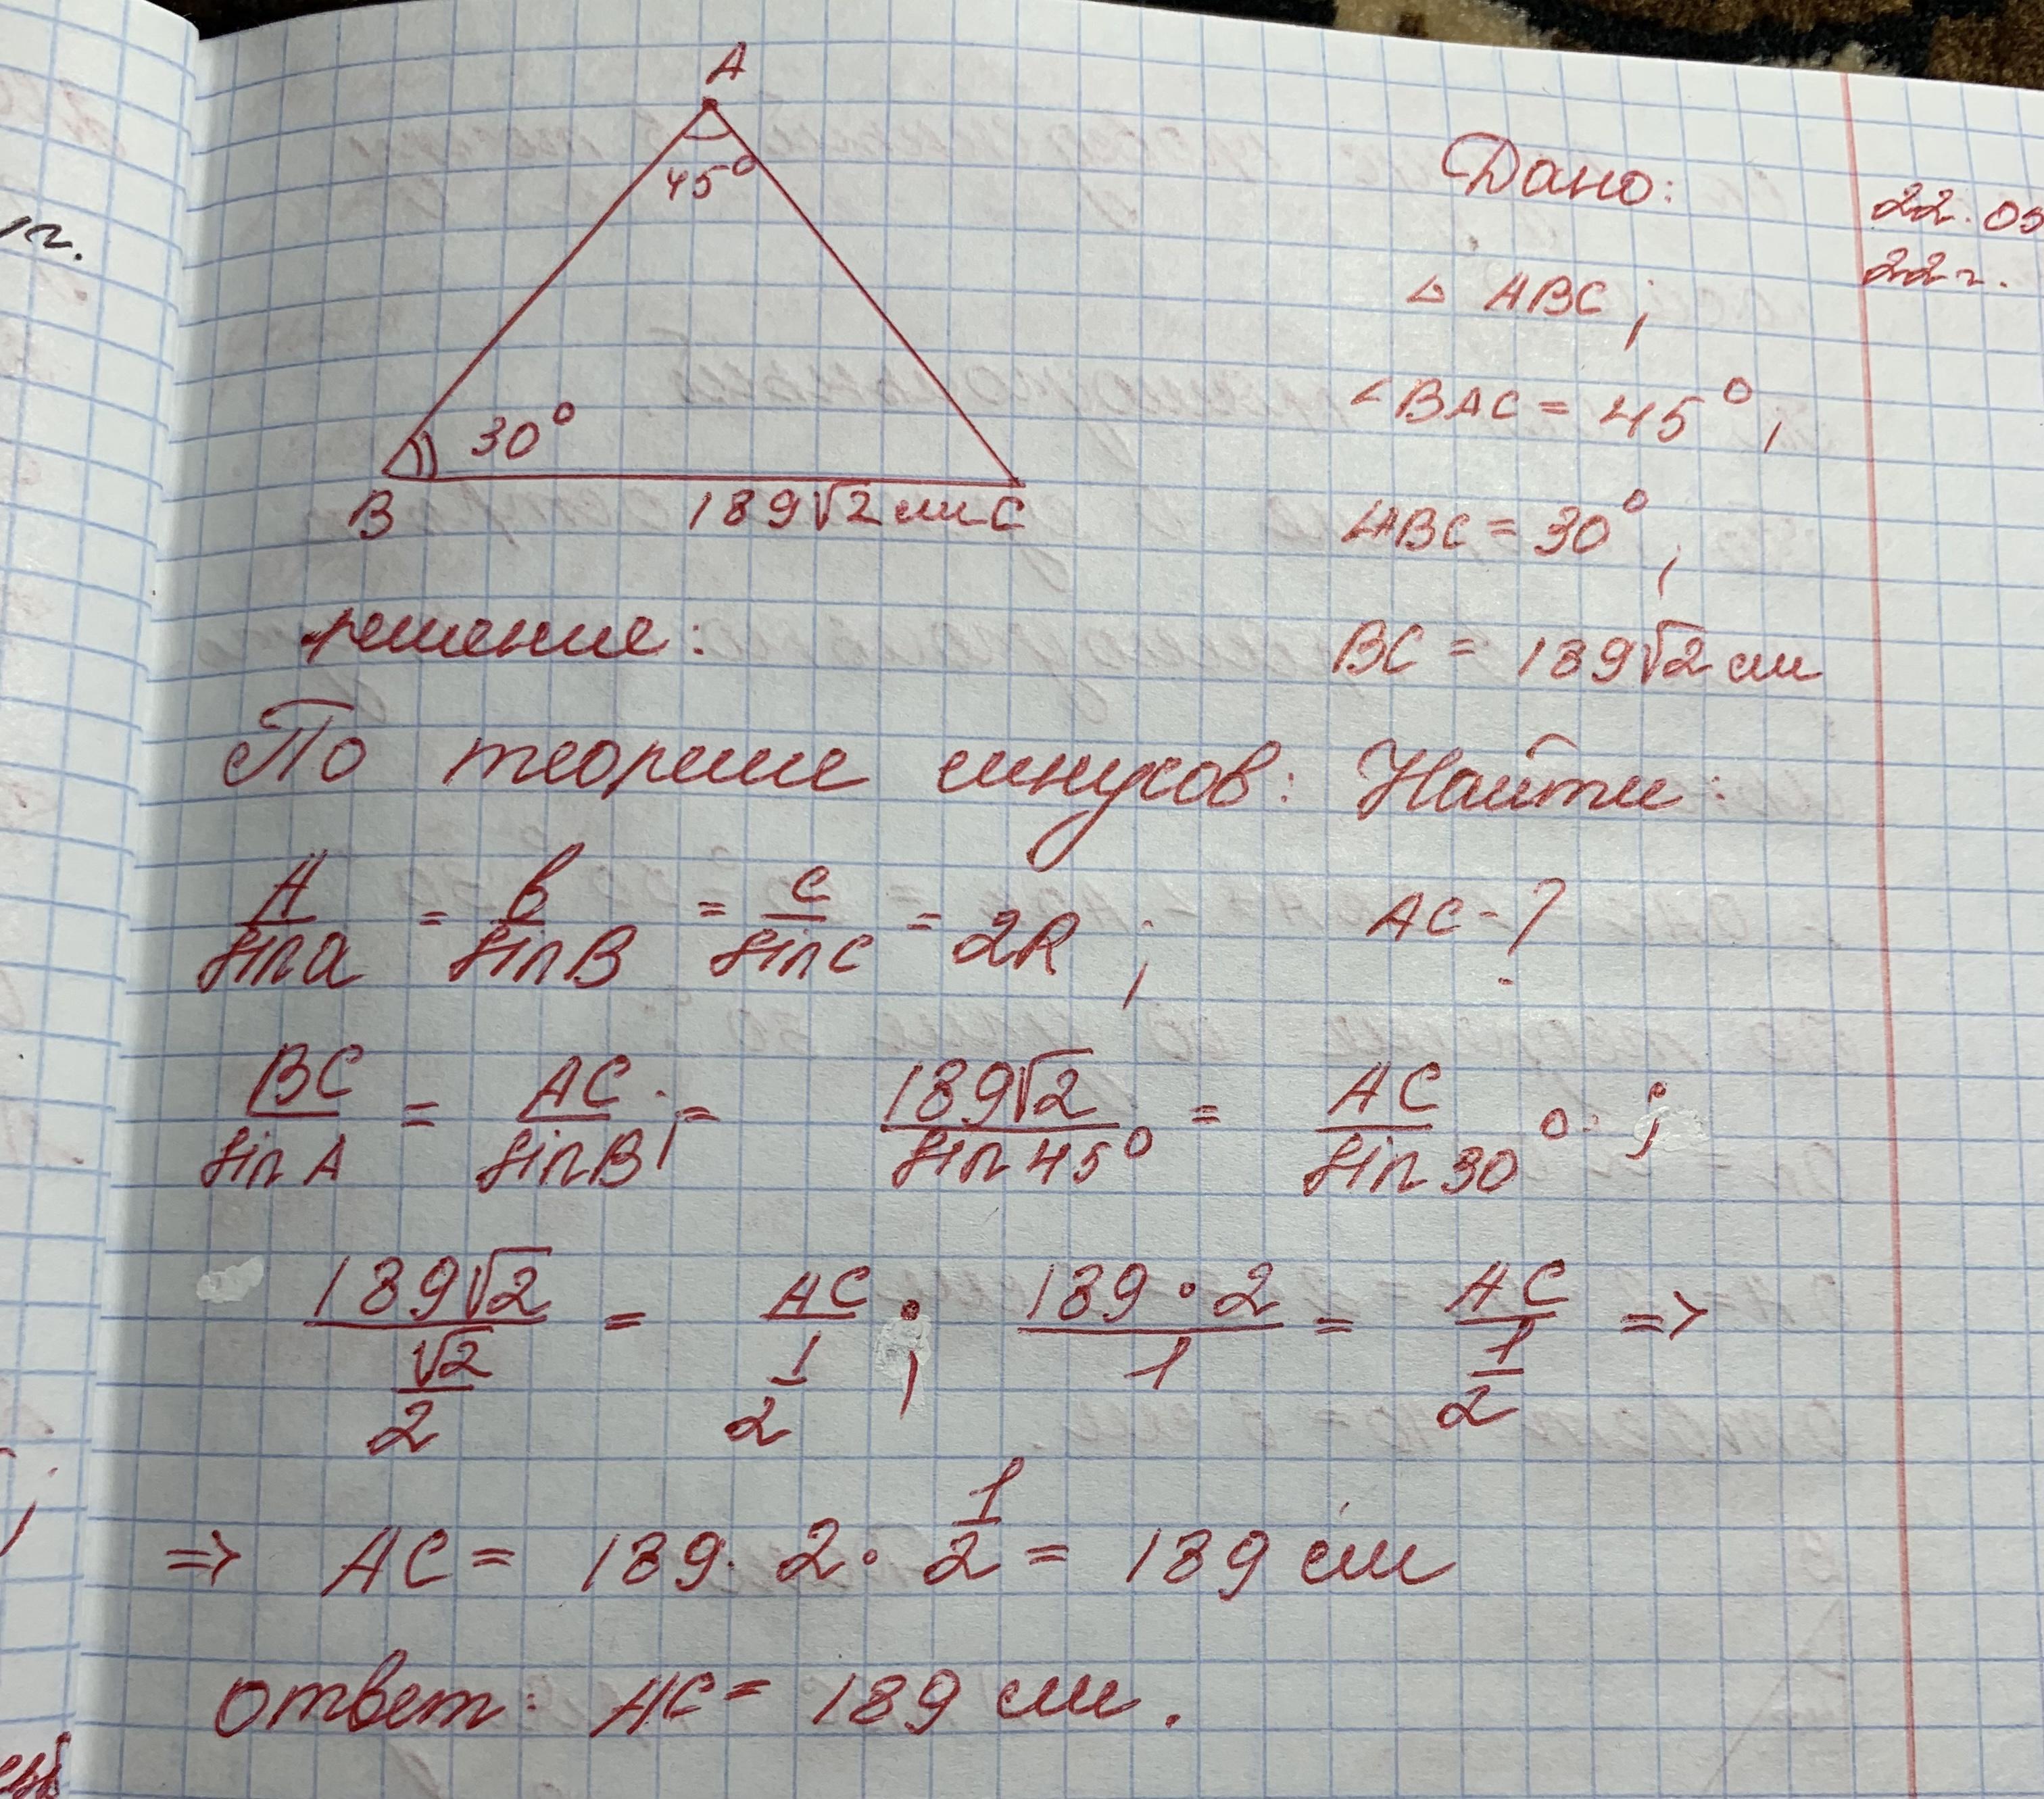 A
45°
30°
B 189√2 см C
Дано:
22.05
22г.
△ ABC;
∠BAC = 45°;
∠ABC = 30°;
BC = 189√2 см
решение:
По теореме синусов:
Найти:
AC-?
A/sin a = b/sin B = c/sin C = 2R;
BC/sin A = AC/sin B; = 189√2/sin 45° = AC/sin 30°;
189√2/(√2/2) = AC/(1/2); 189·2/1 = AC/(1/2) =>
=> AC = 189·2·1/2 = 189 см
ответ: AC = 189 см.
г.